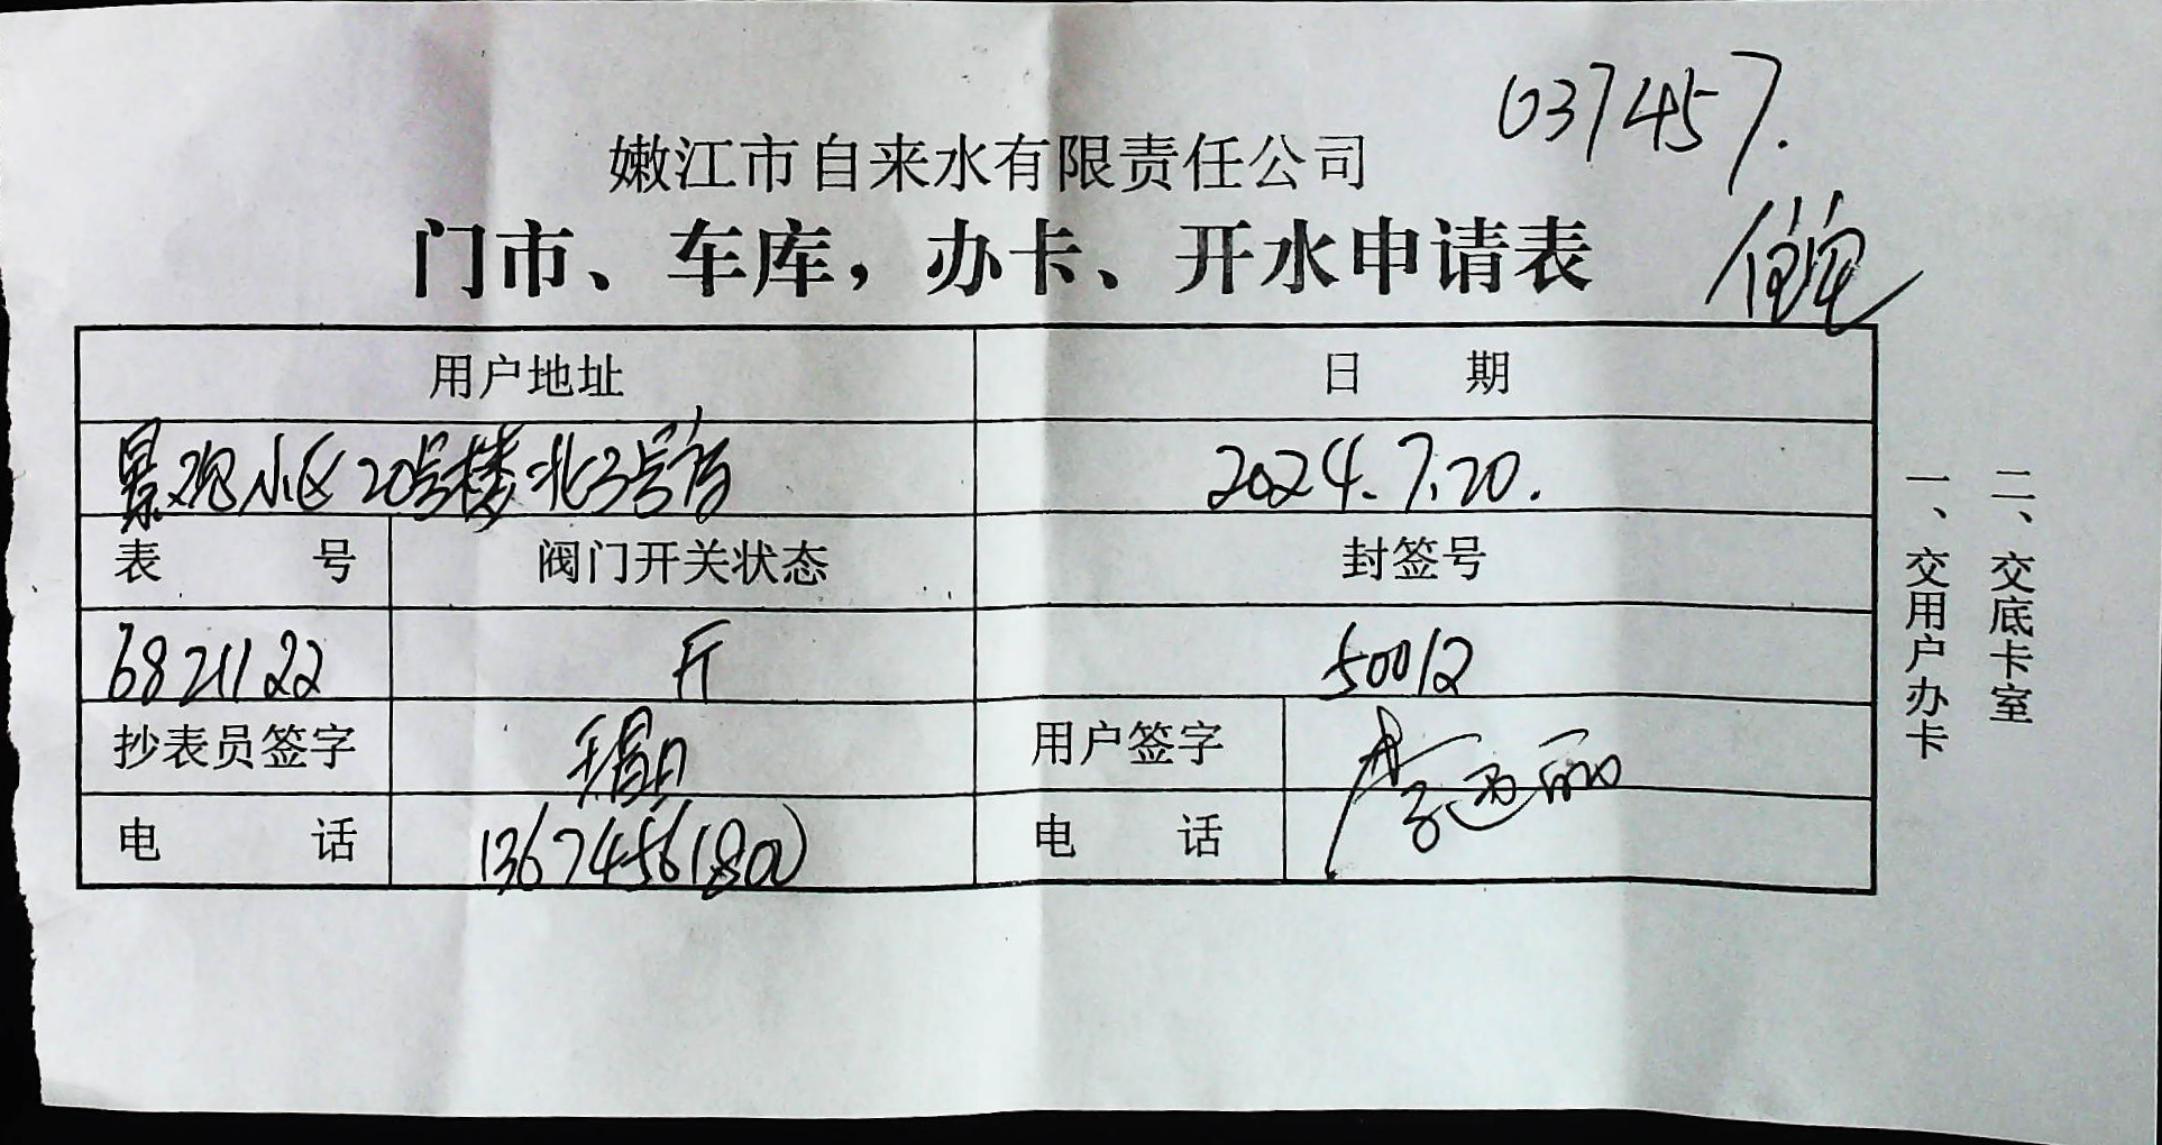 037457.
嫩江市自来水有限责任公司
门市、车库，办卡、开水申请表
用户地址 日 期
景观小区20号楼北3号门 2024.7.20.
表 号 阀门开关状态 封签号
6821122 开 50012
抄表员签字 用户签字
电 话 13674561800 电 话
一、交用户办卡
二、交底卡室